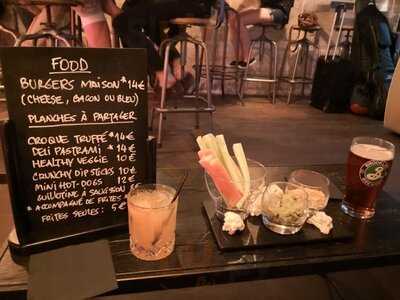 FOOD
BURGERS MAISON *14€
(CHEESE, BACON OU BLEU)
PLANCHES À PARTAGER
CROQUE TRUFFÉ *14€
DELI PASTRAMI *14€
HEALTHY VEGGIE 10€
CRUNCHY DIP STICKS 10€
MINI HOT-DOGS 12€
GUILLOTINE À SAUCISSON 10€
*ACCOMPAGNÉ DE FRITES
FRITES SEULES: 5€
B